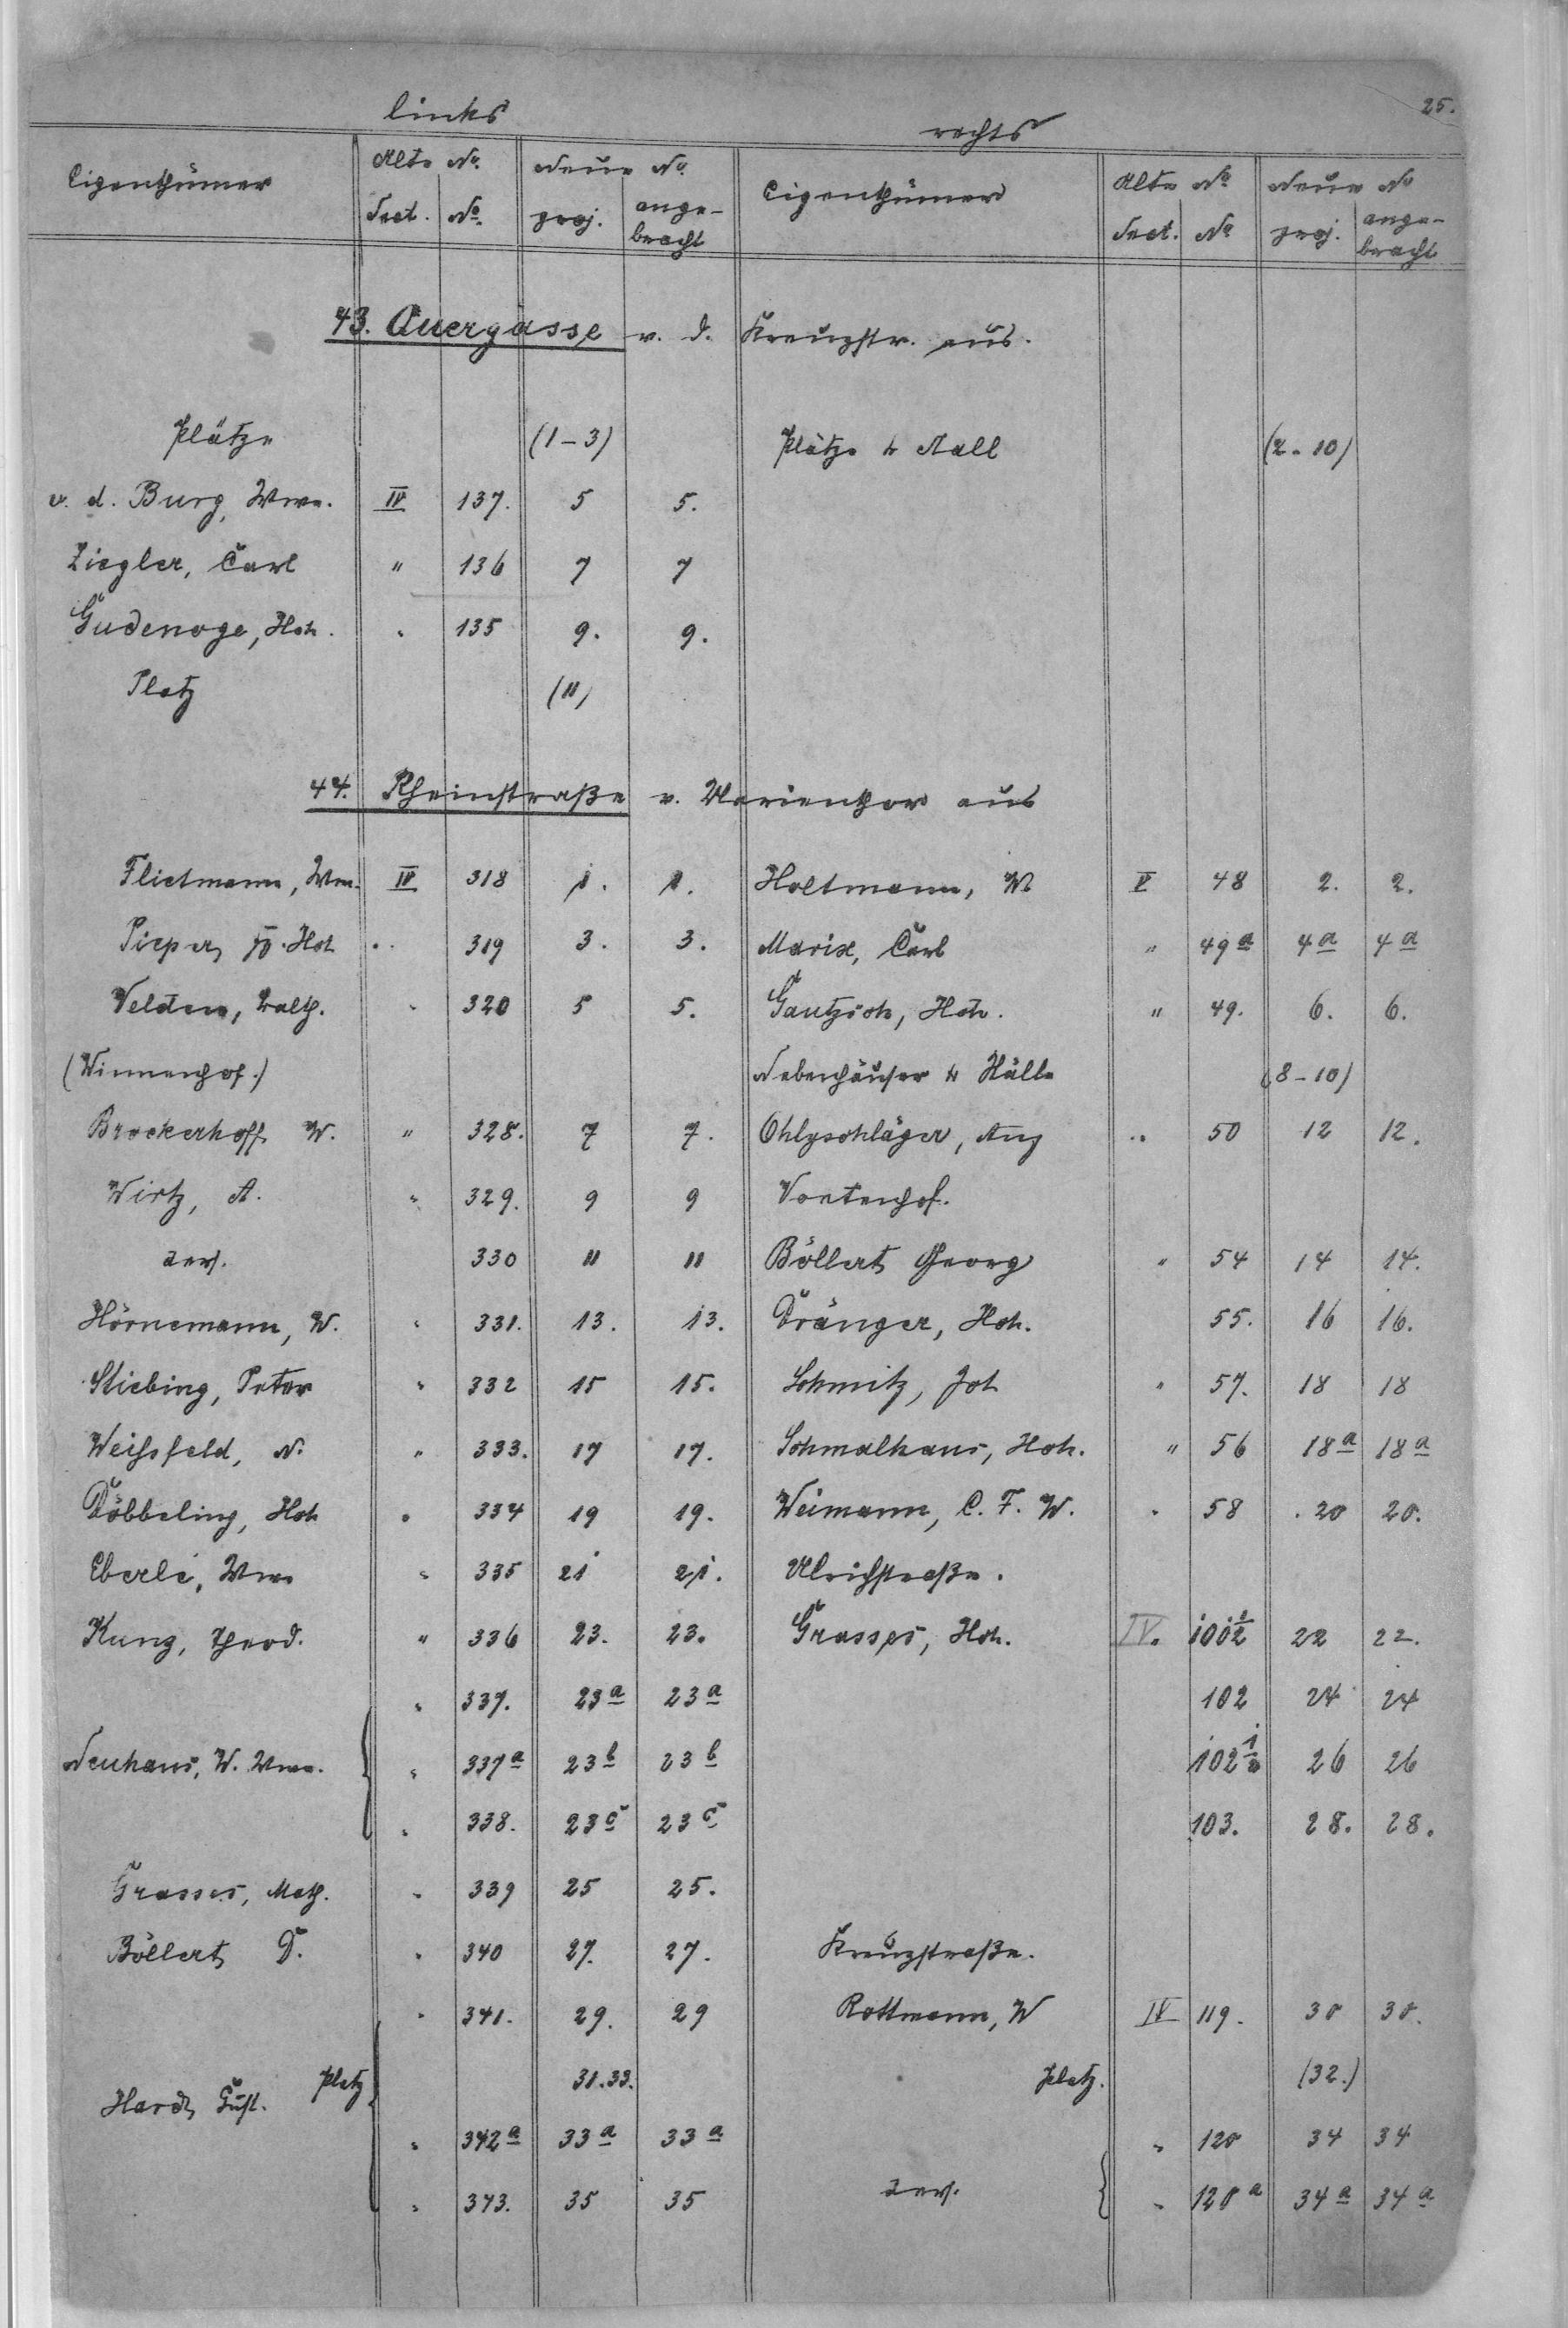 25.
links rechts
Eigenthümer Alte No. Neue No. Eigenthümer Alte No Neue No
Sect. No. proj. ange- Sect. No proj. ange-
bracht bracht
43. Quergasse v. d. Kreuzstr. aus.
Plätze (1-3) Plätze & Stall (2-10)
v. d. Burg, Wwe. IV 137. 5 5.
Ziegler, Carl " 136 7 7
Gudenoge, Hch. " 135 9. 9.
Platz (11)
44. Rheinstraße v. Marienthor aus
Flietmann, Wwe. IV 318 1. 1. Holtmann, W. V 48 2. 2.
Pieper, Hch " 319 3. 3. Marix, Carl " 49a 4a 4a
Velden, Walth. " 320 5 5. Gautzsch, Hch. " 49. 6. 6.
(Winnenhof.) Nebenhäuser & Ställe (8-10)
Brockerhoff W. " 328. 7 7. Ohlyschläger, Aug " 50 12 12.
Wirtz, A. " 329. 9 9 Vontenhof.
ders. 330 11 11 Böllert, Georg " 54 14 14.
Hörnemann, W. " 331. 13. 13. Dränger, Hch. 55. 16 16.
Stiebing, Peter " 332 15 15. Schmitz, Joh " 57. 18 18
Weihsfeld, N. " 333. 17 17. Schmalhaus, Hch. " 56 18a 18a
Döbbeling, Hch " 334 19 19. Weimann, C. F. W. " 58 20 20.
Eberle, Wwe " 335 21 21. Ulrichstraße.
Kunz, Theod. " 336 23. 23. Grasses, Hch. IV. 100½ 22 22.
" 337. 23a 23a 102 24 24
Neuhaus, W. Wwe. " 337a 23b 23b 102½ 26 26
" 338. 23c 23c 103. 28. 28.
Grasses, Math. " 339 25 25.
Böllert, D. " 340 27. 27. Kreuzstraße.
" 341. 29. 29 Rottmann, W IV 119. 30 30.
Platz 31.33. Platz. (32.)
Hardt, Gust.
" 342a 33a 33a " 120 34 34
" 343. 35 35 ders. " 120a 34a 34a